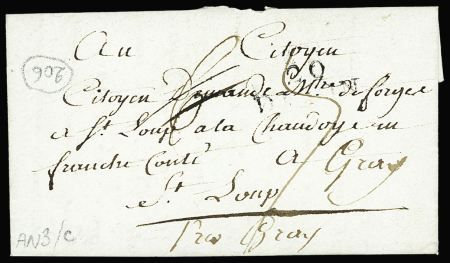 Au Citoyen
906
69
Citoyen Mtre de forges
a St. Loup a la Chaudoye en
franche Conté a Gray
St. Loup
Pres Gray
AN3/C